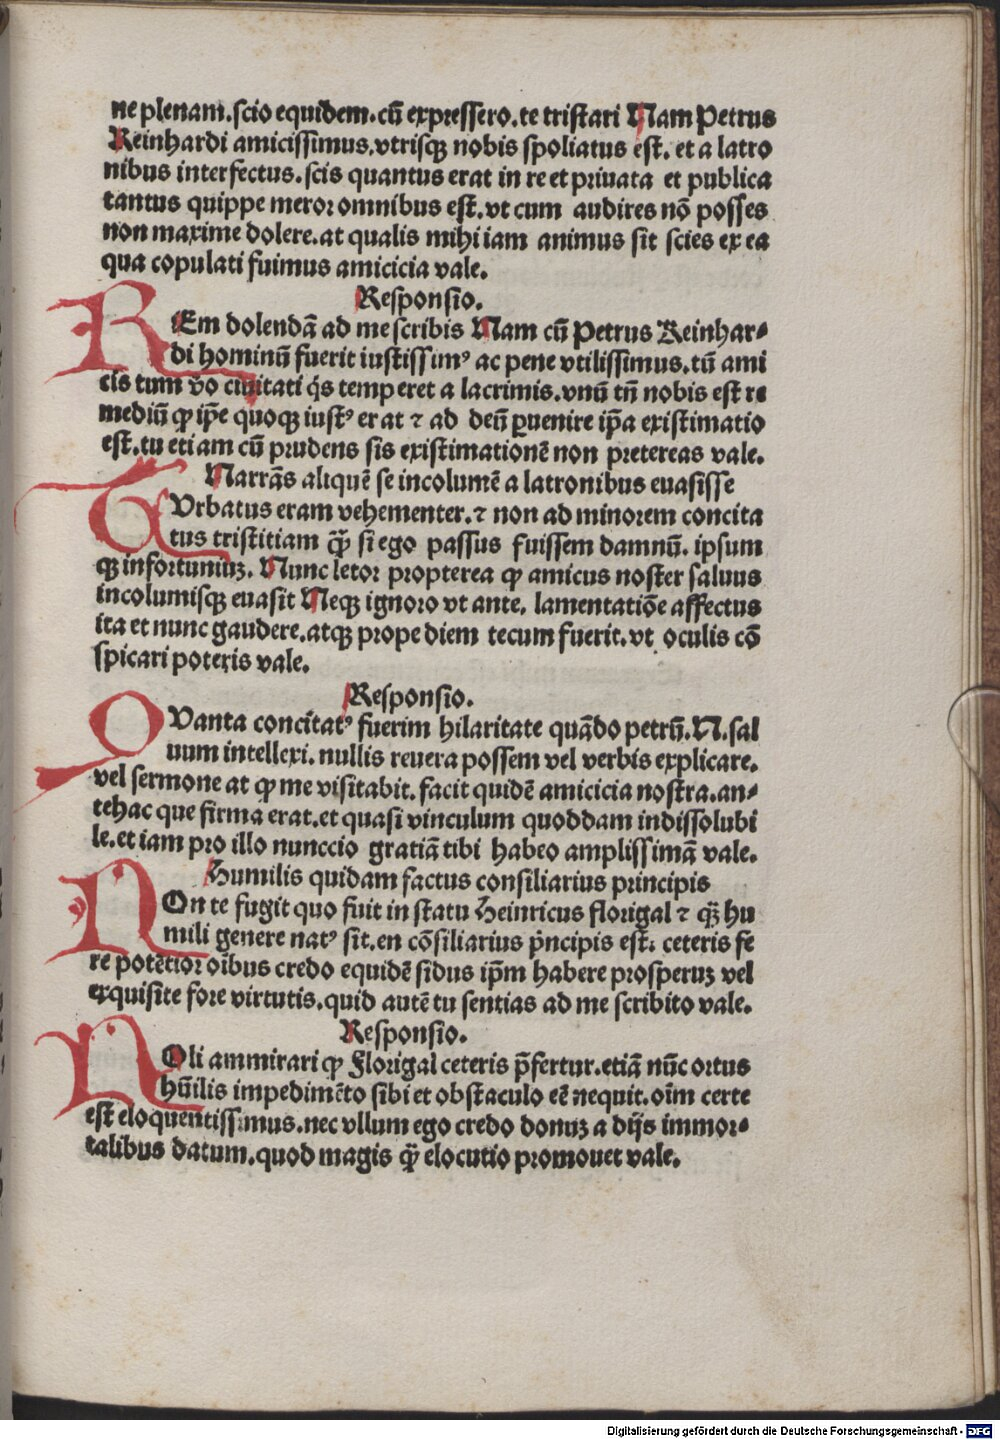 ne plenam.ſcio equidem.cū expreſſero.te triſtari Nam Petrus
Reinhardi amiciſſimus.vtriſqꝫ nobis ſpoliatus eſt. et a latro
nibus interfectus.ſcis quantus erat in re et priuata et publica
tantus quippe meror omnibus eſt.vt cum audires nō poſſes
non maxime dolere.at qualis mihi iam animus ſit ſcies ex ea
qua copulati fuimus amicicia vale.
Reſponſio.
REm dolendā ad me ſcribis Nam cū Petrus Reinhar⸗
di hominū fuerit iuſtiſſimꝰ ac pene vtiliſſimus.tū ami
cis tum v̄o ciuitati q̇s temperet a lacrimis.vnū tn̄ nobis eſt re
mediū ꝙ ip̄e quoqꝫ iuſtꝰ erat ⁊ ad deū ꝑuenire ip̄a exiſtimatio
eſt.tu etiam cū prudens ſis exiſtimationē non pretereas vale.
Narrās aliquē ſe incolumē a latronibus euaſiſſe
TVrbatus eram vehementer.⁊ non ad minorem concita
tus triſtitiam ꝙ̄ ſi ego paſſus fuiſſem damnū. ipſum
qꝫ infortuniuꝫ. Nunc letor propterea ꝙ amicus noſter ſaluus
incolumiſqꝫ euaſit Neqꝫ ignoro vt ante. lamentatiōe affectus
ita et nunc gaudere.atqꝫ prope diem tecum fuerit.vt oculis cō
ſpicari poteris vale.
Reſponſio.
QVanta concitatꝰ fuerim hilaritate quādo petrū.N.ſal
uum intellexi.nullis reuera poſſem vel verbis explicare.
vel ſermone at ꝙ me viſitabit.facit quidē amicicia noſtra.an⸗
tehac que firma erat.et quaſi vinculum quoddam indiſſolubi
le.et iam pro illo nunccio gratiā tibi habeo ampliſſimā vale.
Humilis quidam factus conſiliarius principis
NOn te fugit quo fuit in ſtatu Heinricus florigal ⁊ ꝙ̄ hu
mili genere natꝰ ſit.en cōſiliarius pṅcipis eſt. ceteris fe
re potētior oībus credo equidē ſidus ip̄m habere proſperuꝫ vel
exquiſite fore virtutis.quid autē tu ſentias ad me ſcribito vale.
Reſponſio.
NOli ammirari ꝙ Florigal ceteris p̄fertur.etiā nūc ortus
hūilis impedimēto ſibi et obſtaculo eē nequit.oīm certe
eſt eloquentiſſimus.nec vllum ego credo donuꝫ a dijs immor⸗
talibus datum.quod magis ꝙ̄ elocutio promouet vale.
Digitalisierung gefördert durch die Deutsche Forschungsgemeinschaft - DFG